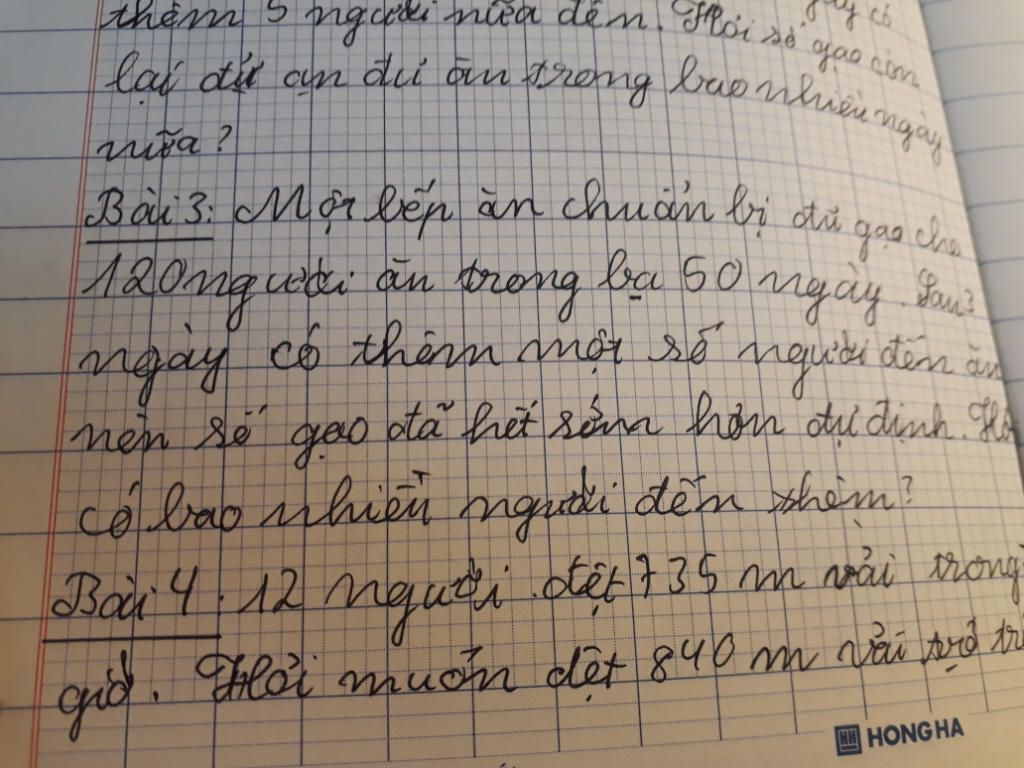 thêm 5 người nữa đến. Hỏi số gạo còn
lại đủ ăn trong bao nhiêu ngày
nữa?
Bài 3: Một bếp ăn chuẩn bị đủ gạo cho
120 người ăn trong 50 ngày. Sau 3
ngày có thêm một số người đến ăn
nên số gạo đã hết sớm hơn dự định. Hỏi
có bao nhiêu người đến thêm?
Bài 4. 12 người dệt 735 m vải trong
giờ. Hỏi muốn dệt 840 m vải
HONG HA